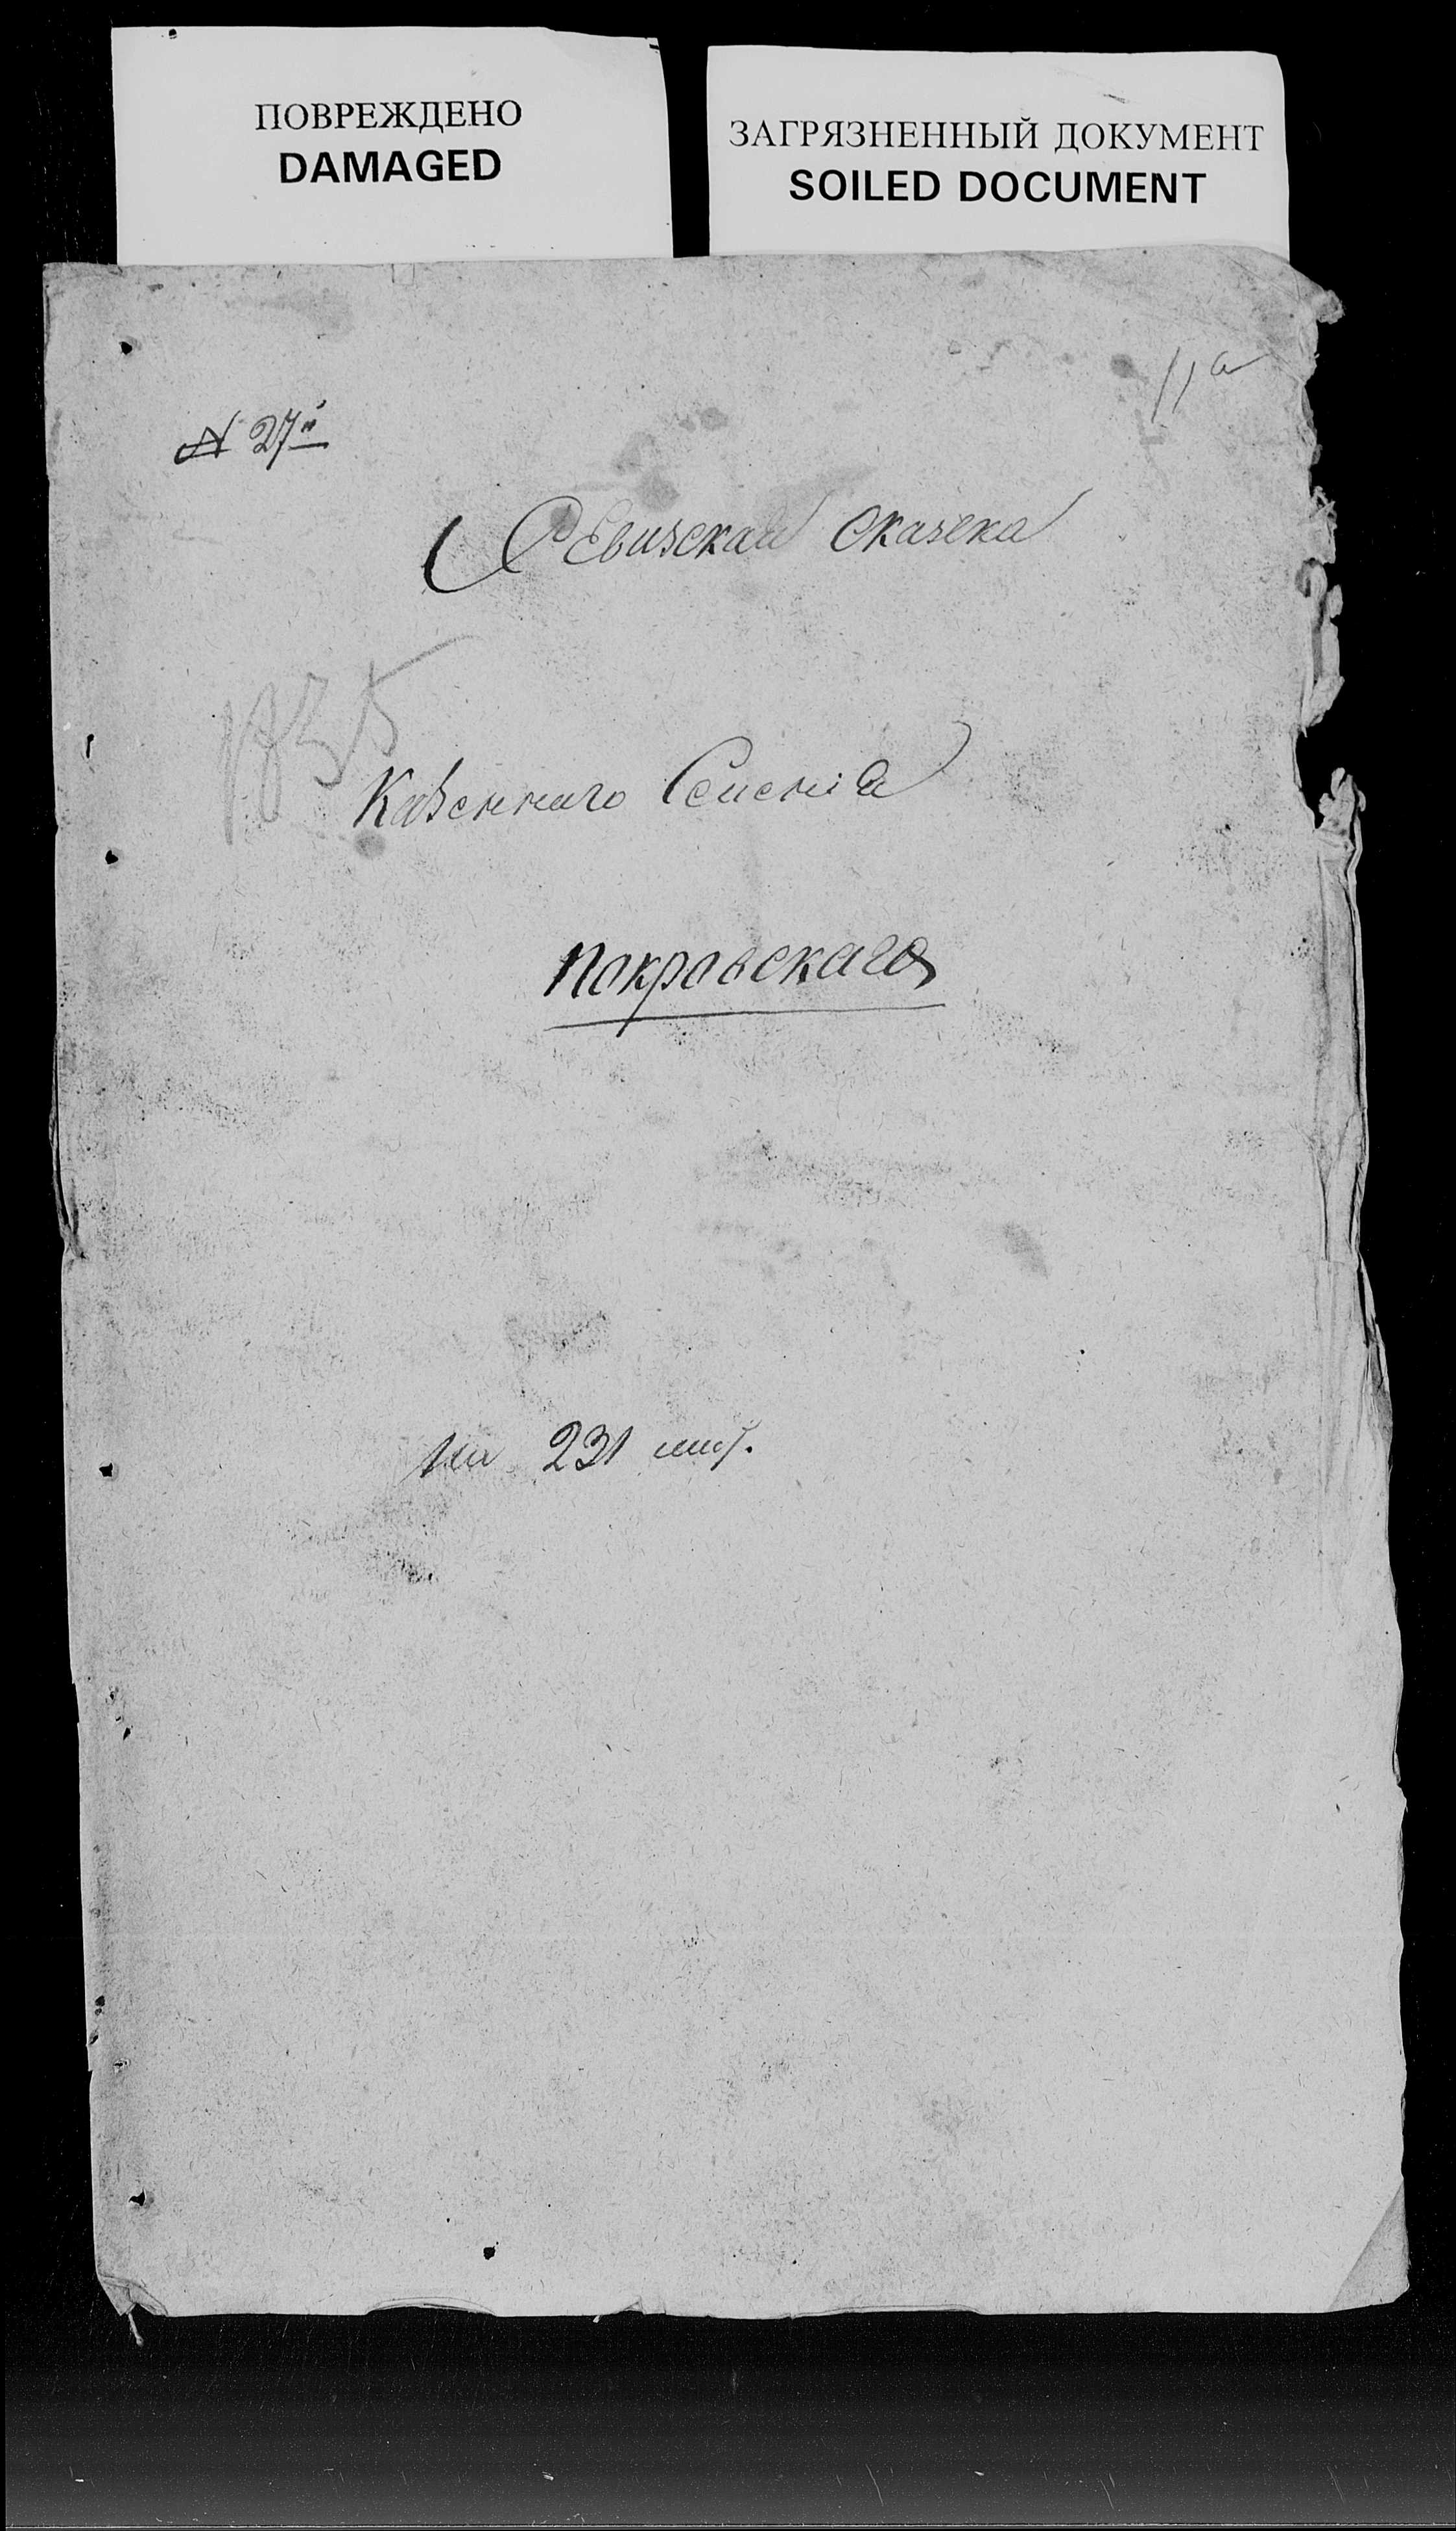 ПОВРЕЖДЕНО
DAMAGED
ЗАГРЯЗНЕННЫЙ ДОКУМЕНТ
SOILED DOCUMENT
№ 27й
Ревизская Сказка
1835
Казеннаго Селенія
Покровскаго
На 231 лист.